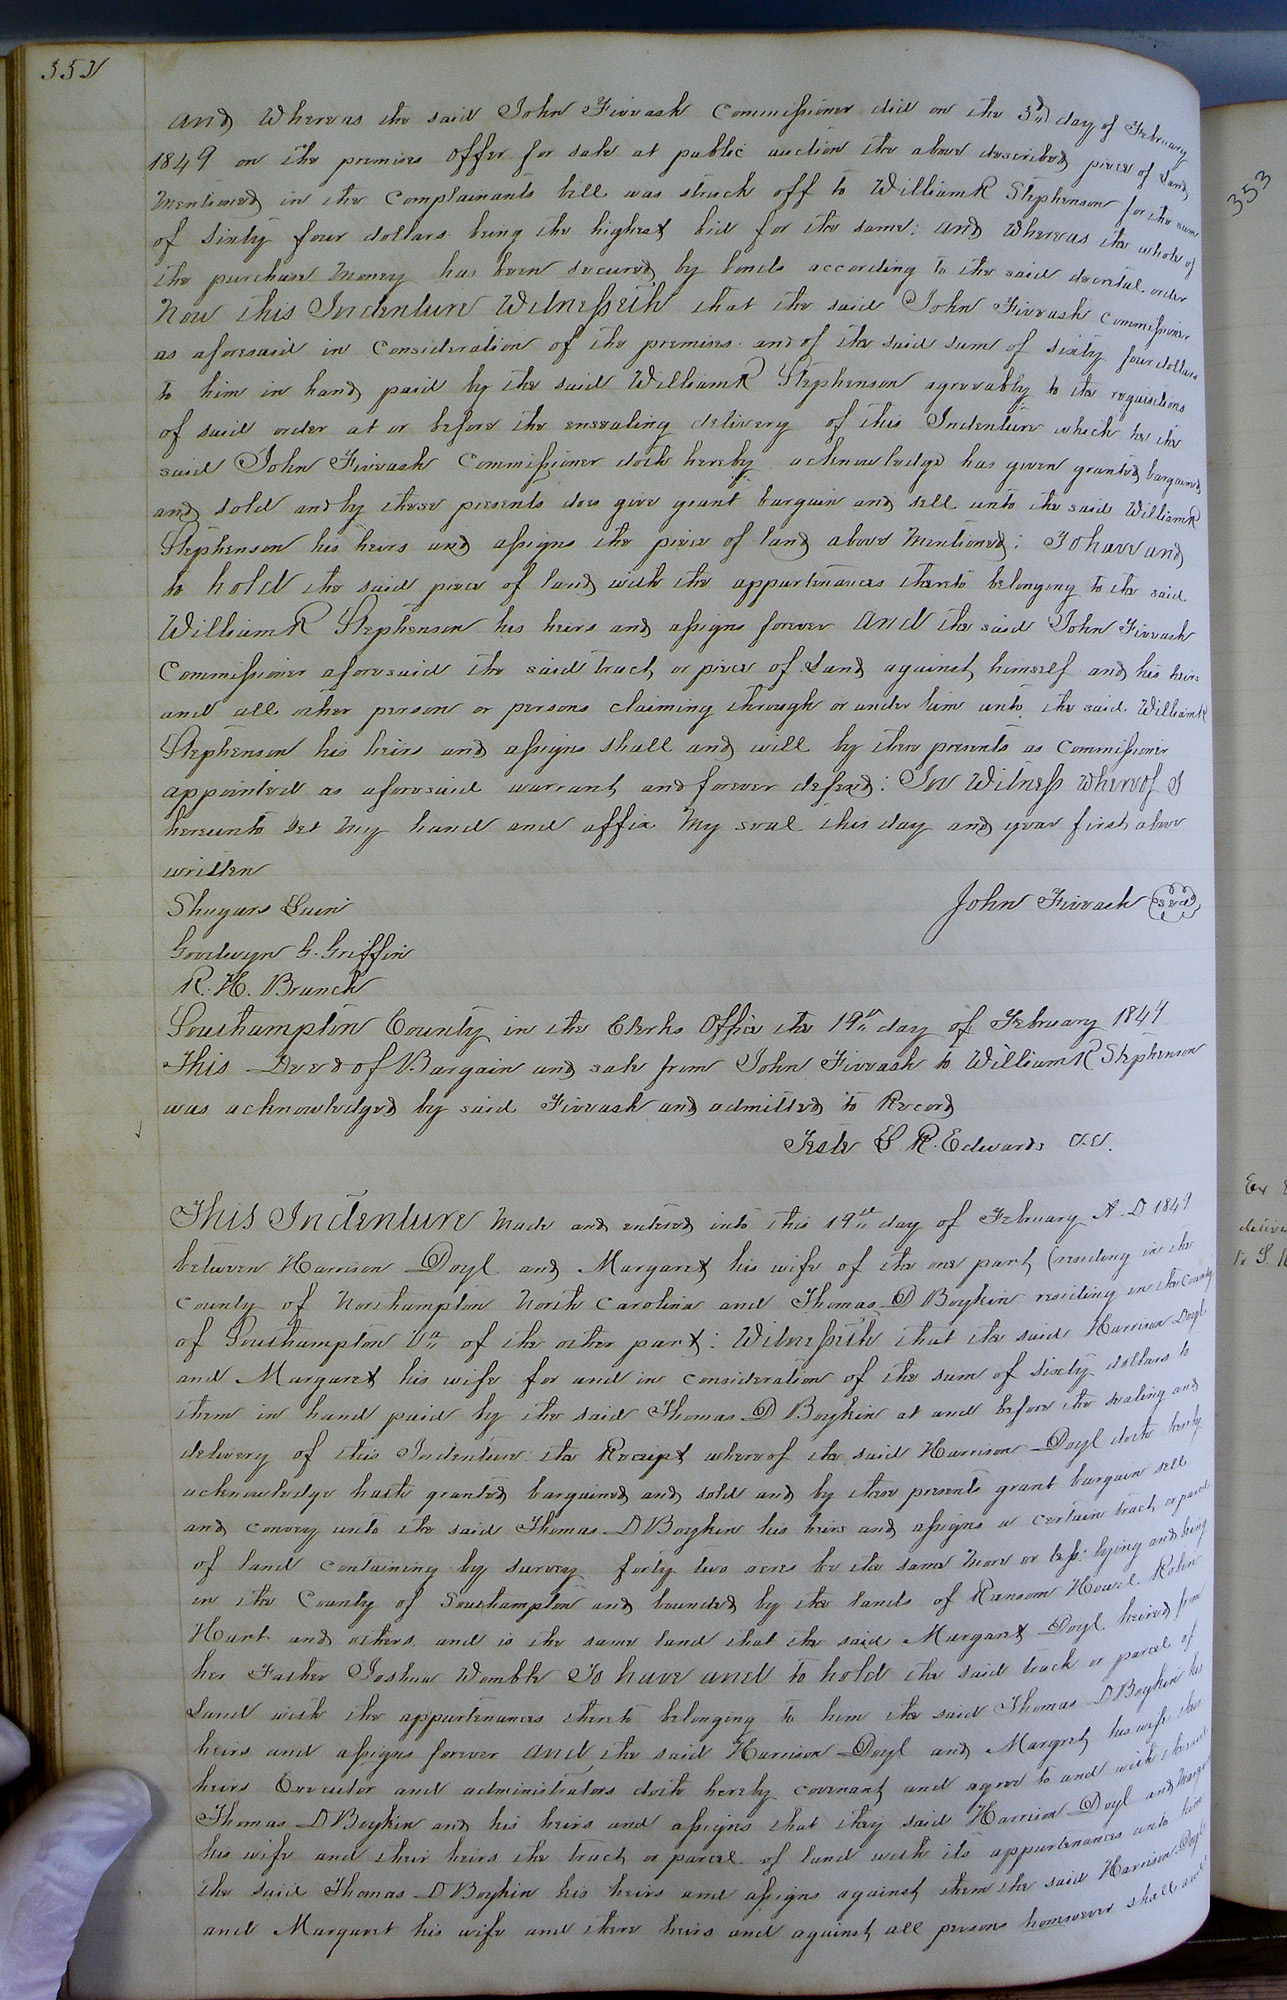 352
And Whereas the said John Fivrash Commissioner did on the 3rd day of February
1849 on the premises offer for sale at public auction the above described piece of Land
Mentioned in the Complainants bill was struck off to William R Stephenson for the sum
of Sixty four dollars being the highest bid for the same: And Whereas the whole of
the purchase Money has been secured by bonds according to the said decretal order
Now this Indenture Witnesseth that the said John Fivrash Commissioner
as aforesaid in Consideration of the premises and of the said sum of sixty four dollars
to him in hand paid by the said William R Stephenson agreeably to the requisitions
of said order at or before the ensealing delivery of this Indenture which he the
said John Fivrash Commissioner doth hereby acknowledge has given granted bargained
and sold and by these presents does give grant bargain and sell unto the said William R
Stephenson his heirs and assigns the piece of land above Mentioned: To have and
to hold the said piece of land with the appurtenances thereto belonging to the said
William R Stephenson his heirs and assigns forever And the said John Fivrash
Commissioner aforesaid the said tract or piece of Land against himself and his heirs
and all other person or persons claiming through or under him unto the said William R
Stephenson his heirs and assigns shall and will by these presents as Commissioner
appointed as aforesaid warrant and forever defend: In Witness whereof I
hereunto set My hand and affix My seal this day and year first above
written
Shugars Lain
John Fivrash seal
Goodwyn G. Griffin
R. H. Branch
Southampton County in the Clerks Office the 19th day of February 1849
This Deed of Bargain and sale from John Fivrash to William R Stephenson
was acknowledged by said Fivrash and admitted to Record
Teste L R. Edwards C.C.
This Indenture Made and entered into this 19th day of February A.D 1849
between Harrison Doyl and Margaret his wife of the one part (residing in the
County of Northampton North Carolina and Thomas D Boykin residing in the County
of Southampton Va of the other part: Witnesseth that the said Harrison Doyl
and Margaret his wife for and in consideration of the sum of sixty dollars to
them in hand paid by the said Thomas D Boykin at and before the sealing and
delivery of this Indenture the Receipt whereof the said Harrison Doyl doth hereby
acknowledge hath granted bargained and sold and by these presents grant bargain sell
and convey unto the said Thomas D Boykin his heirs and assigns a certain tract or parcel
of land containing by survey forty two acres be the same More or less: lying and being
in the County of Southampton and bounded by the lands of Ransom Howel Robin
Hart and others and is the same land that the said Margaret Doyl heired from
her Father Joshua Womble To have and to hold the said track or parcel of
Land with the appurtenances thereto belonging to him the said Thomas D Boykin his
heirs and assigns forever And the said Harrison Doyl and Margret his wife their
heirs Executor and administrators doth hereby covenant and agree to and with the said
Thomas D Boykin and his heirs and assigns that they said Harrison Doyl and Margret
his wife and their heirs the tract or parcel of land with its appurtenances unto him
the said Thomas D Boykin his heirs and assigns against them the said Harrison Doyl
and Margaret his wife and there heirs and against all persons homsoever shall and
353